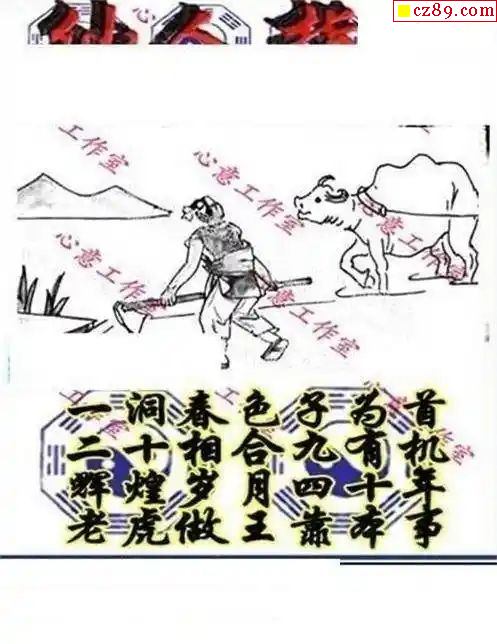 cz89.com
心意工作室
工作室
心意工作室
心意工作室
心意工作室
一洞春色子为首
二十相合九有机
辉煌岁月四十年
老虎做王靠本事